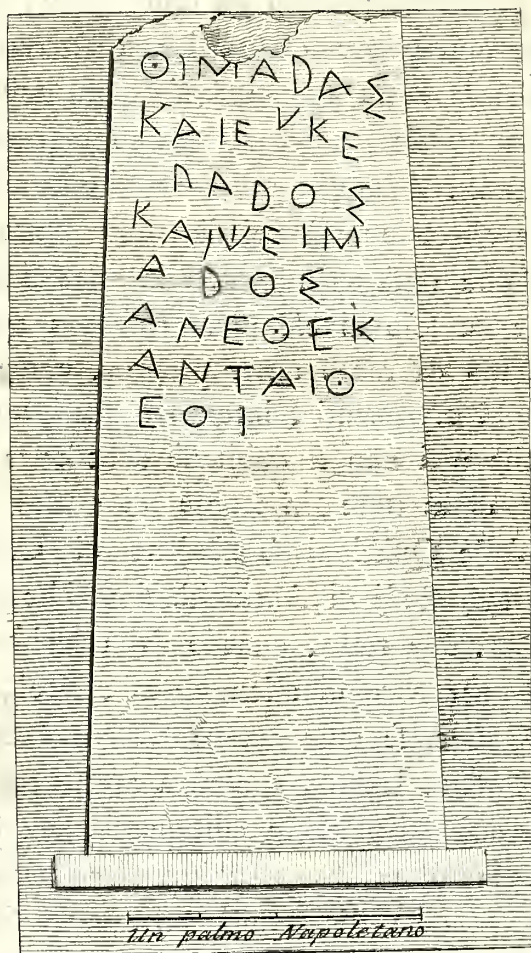 ΘΙΜΑDΑΣ
ΚΑΙΕΥΚΕ
ΛΑDΟΣ
ΚΑΙΨΕΙΜ
ΑDΟΣ
ΑΝΕΘΕΚ
ΑΝΤΑΙΘ
ΕΟΙ
Un palmo Napoletano